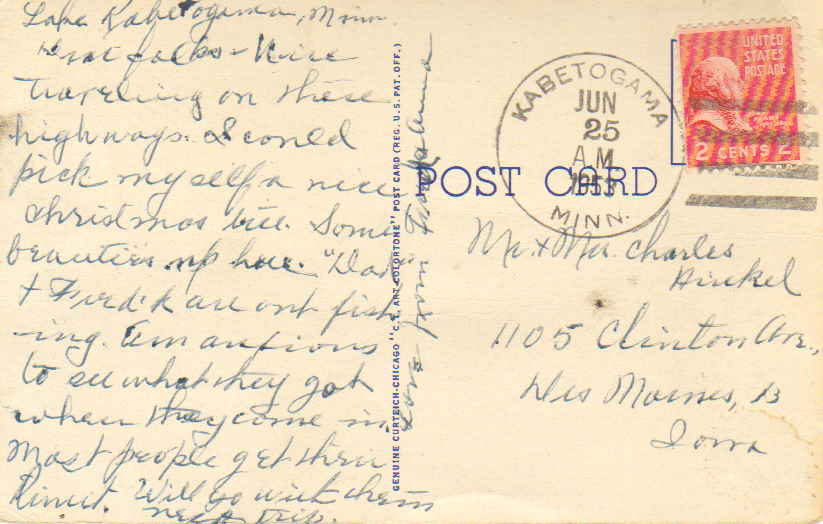 Lake Kabetogama, Minn.
folks - Nice
traveling on these
highways. I could
pick myself a nice
christmas tree. Some
beauties up here. "Dad"
& Fred'k are out fish
-ing. Am anxious
to see what they got
when they come in.
Most people get their
limit. Will go with them
next trip.
Love from
GENUINE CURTEICH-CHICAGO "C.T. ART-COLORTONE" POST CARD (REG. U.S. PAT. OFF.)
POST CARD
KABETOGAMA
JUN
25
A M
1953
MINN.
UNITED
STATES
POSTAGE
2 CENTS 2
Mr. & Mrs. Charles
Hinkel
1105 Clinton Ave.,
Des Moines, 13
Iowa